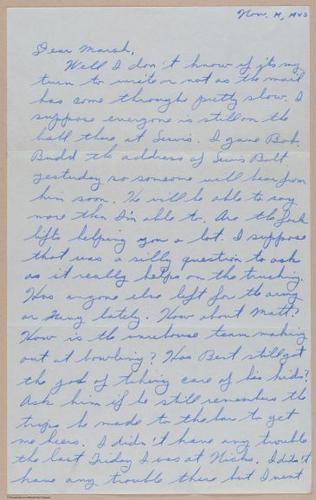 Nov. 14, 1943
Dear Marsh,
Well I don't know if its my
turn to write or not as the mail
has come through pretty slow. I
suppose everyone is still on the
ball there at Lewis. I gave Bob
Budd the address of Lewis Bolt
yesterday so someone will hear from
him soon. He will be able to say
more then I'm able to. Are the fork
lifts helping you a lot. I suppose
that was a silly question to ask
as it really helps on the trucking.
Has anyone else left for the army
or Navy lately. How about Matt?
How is the warehouse team making
out at bowling? Has Bert still got
the job of taking care of his kids?
Ask him if he still remembers the
trips he made to the bar to get
me beers. I didn't have any trouble
the last Friday I was at Nicks. I didn't
have any trouble there but I went